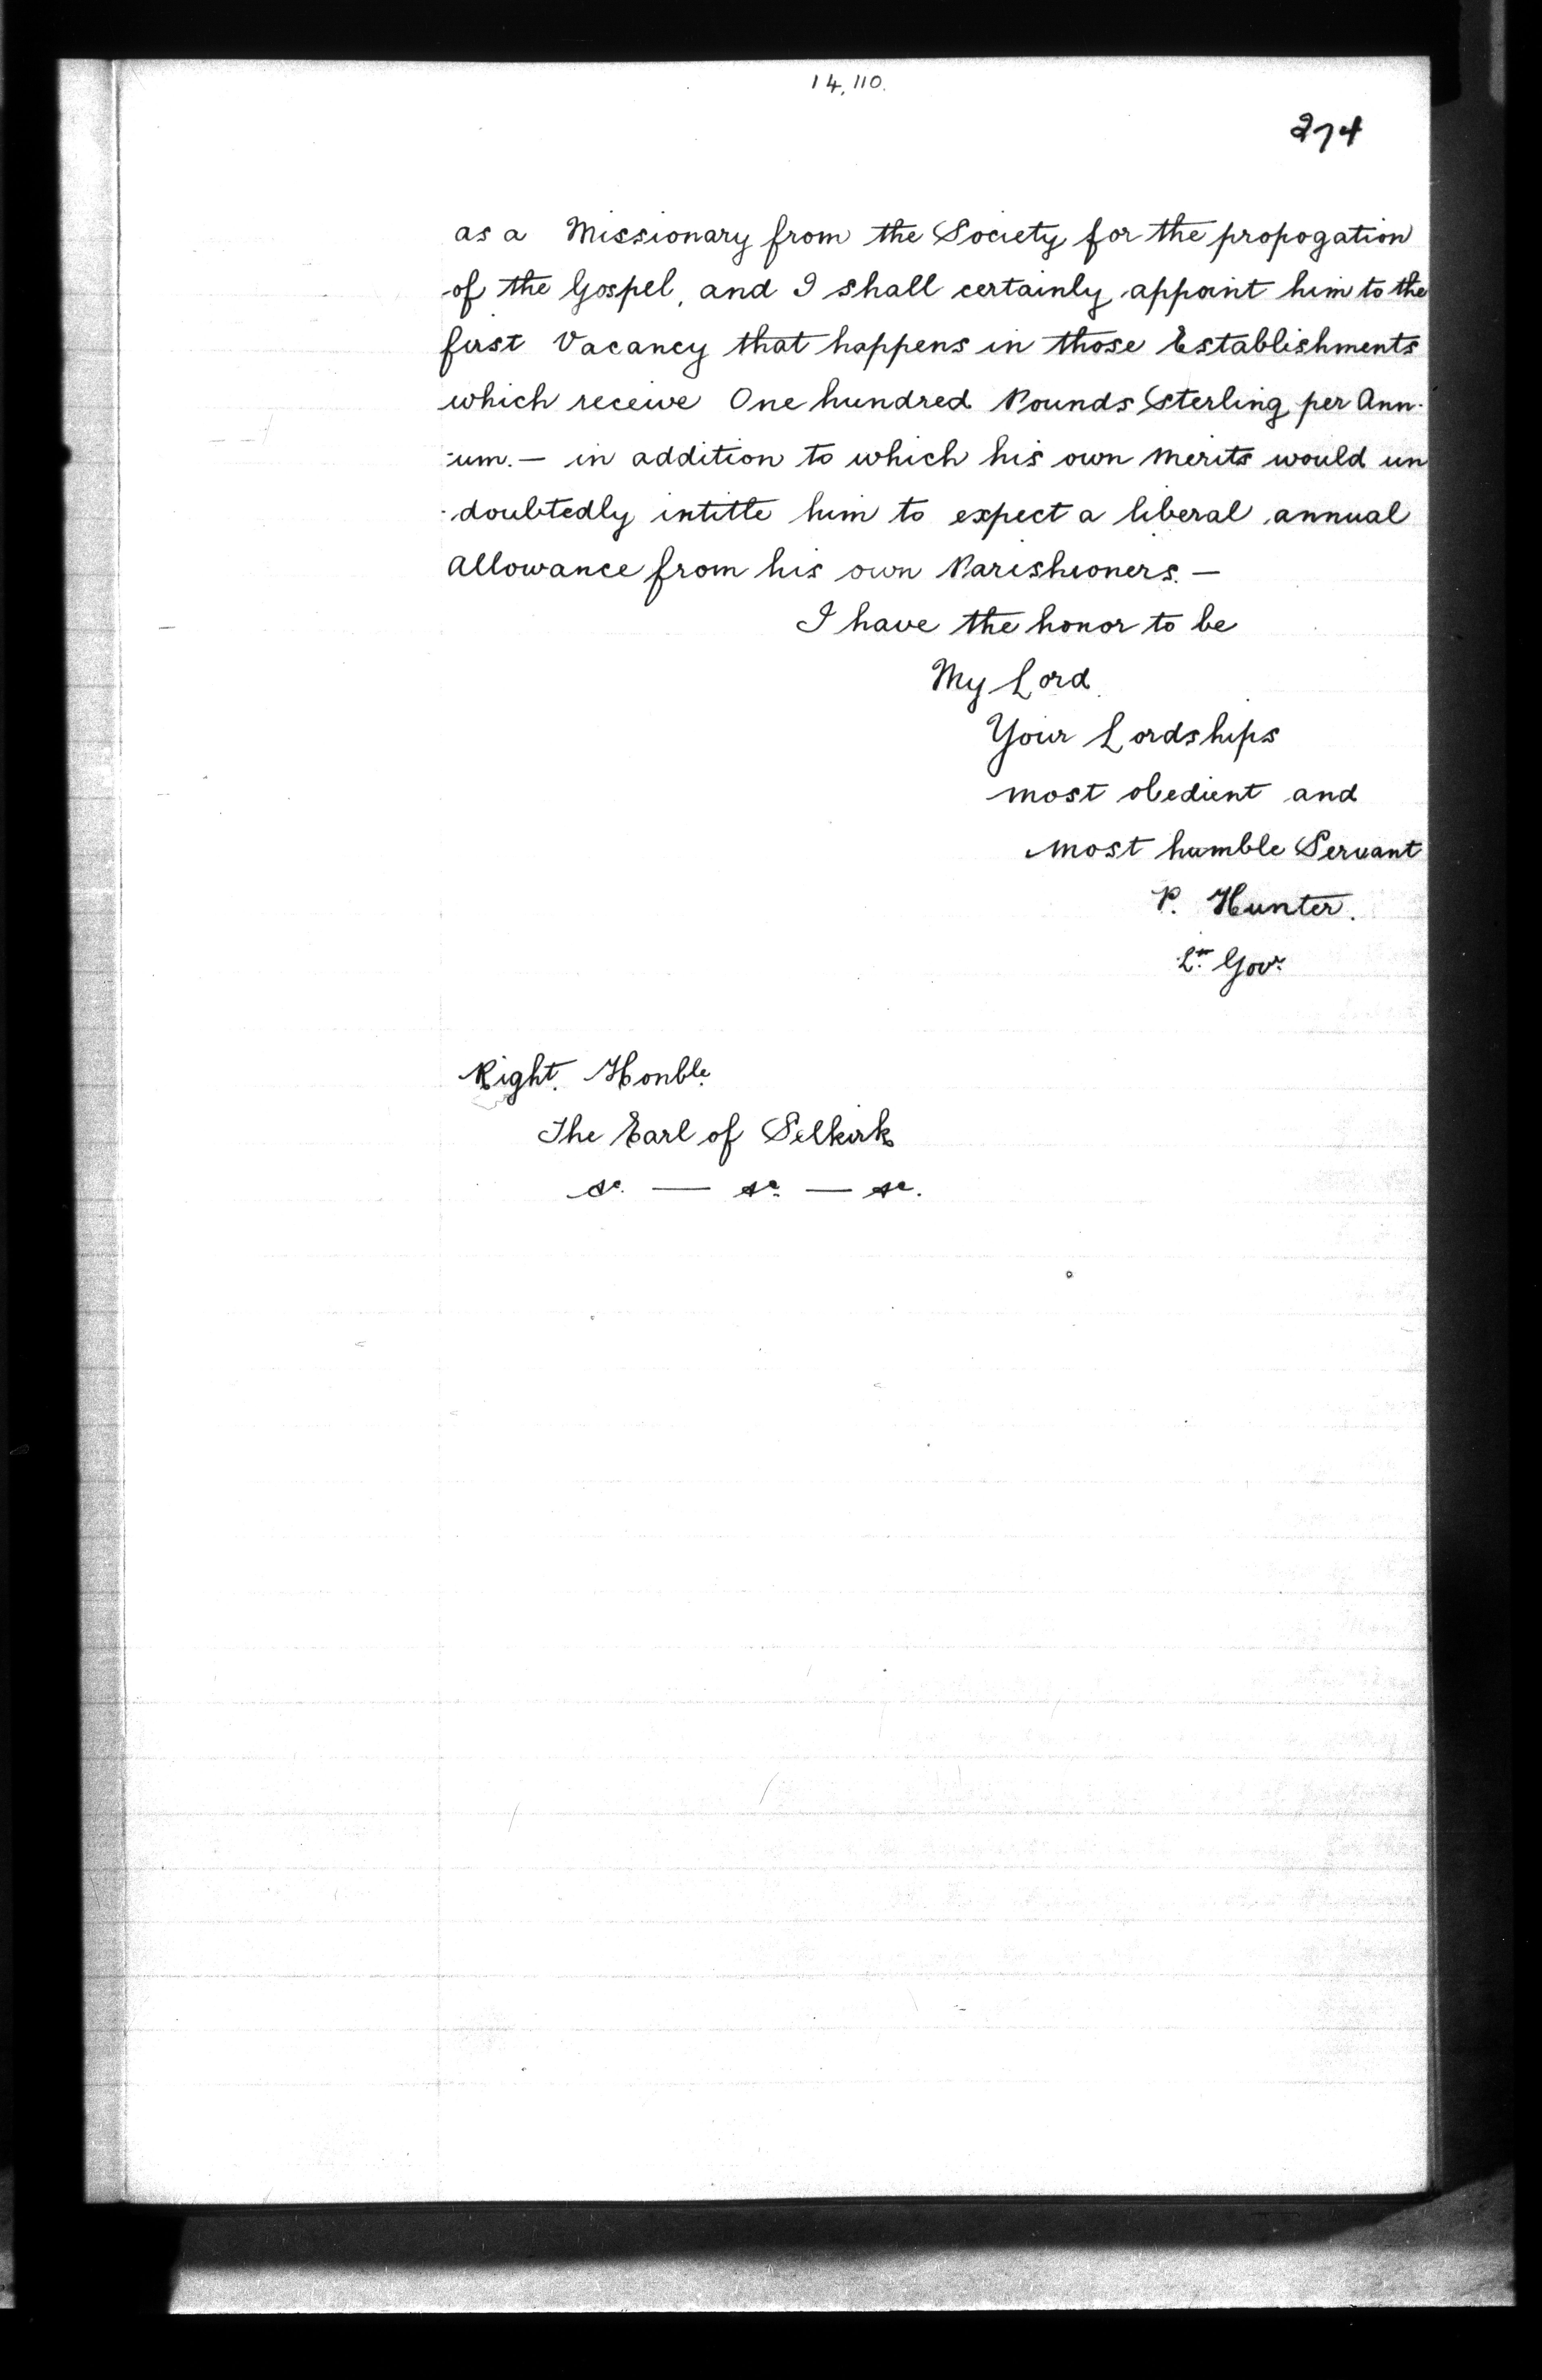 14,110.
274
as a Missionary from the Society for the propogation
of the Gospel, and I shall certainly appoint him to the
first Vacancy that happens in those Establishments
which receive One hundred Pounds Sterling per Ann-
-um. — in addition to which his own merits would un
-doubtedly intitle him to expect a liberal annual
allowance from his own Parishioners. —
I have the honor to be
My Lord
Your Lordships
most obedient and
most humble Servant
P. Hunter.
Lt. Govr.
Right. Honble.
The Earl of Selkirk
&c. — &c. — &c.